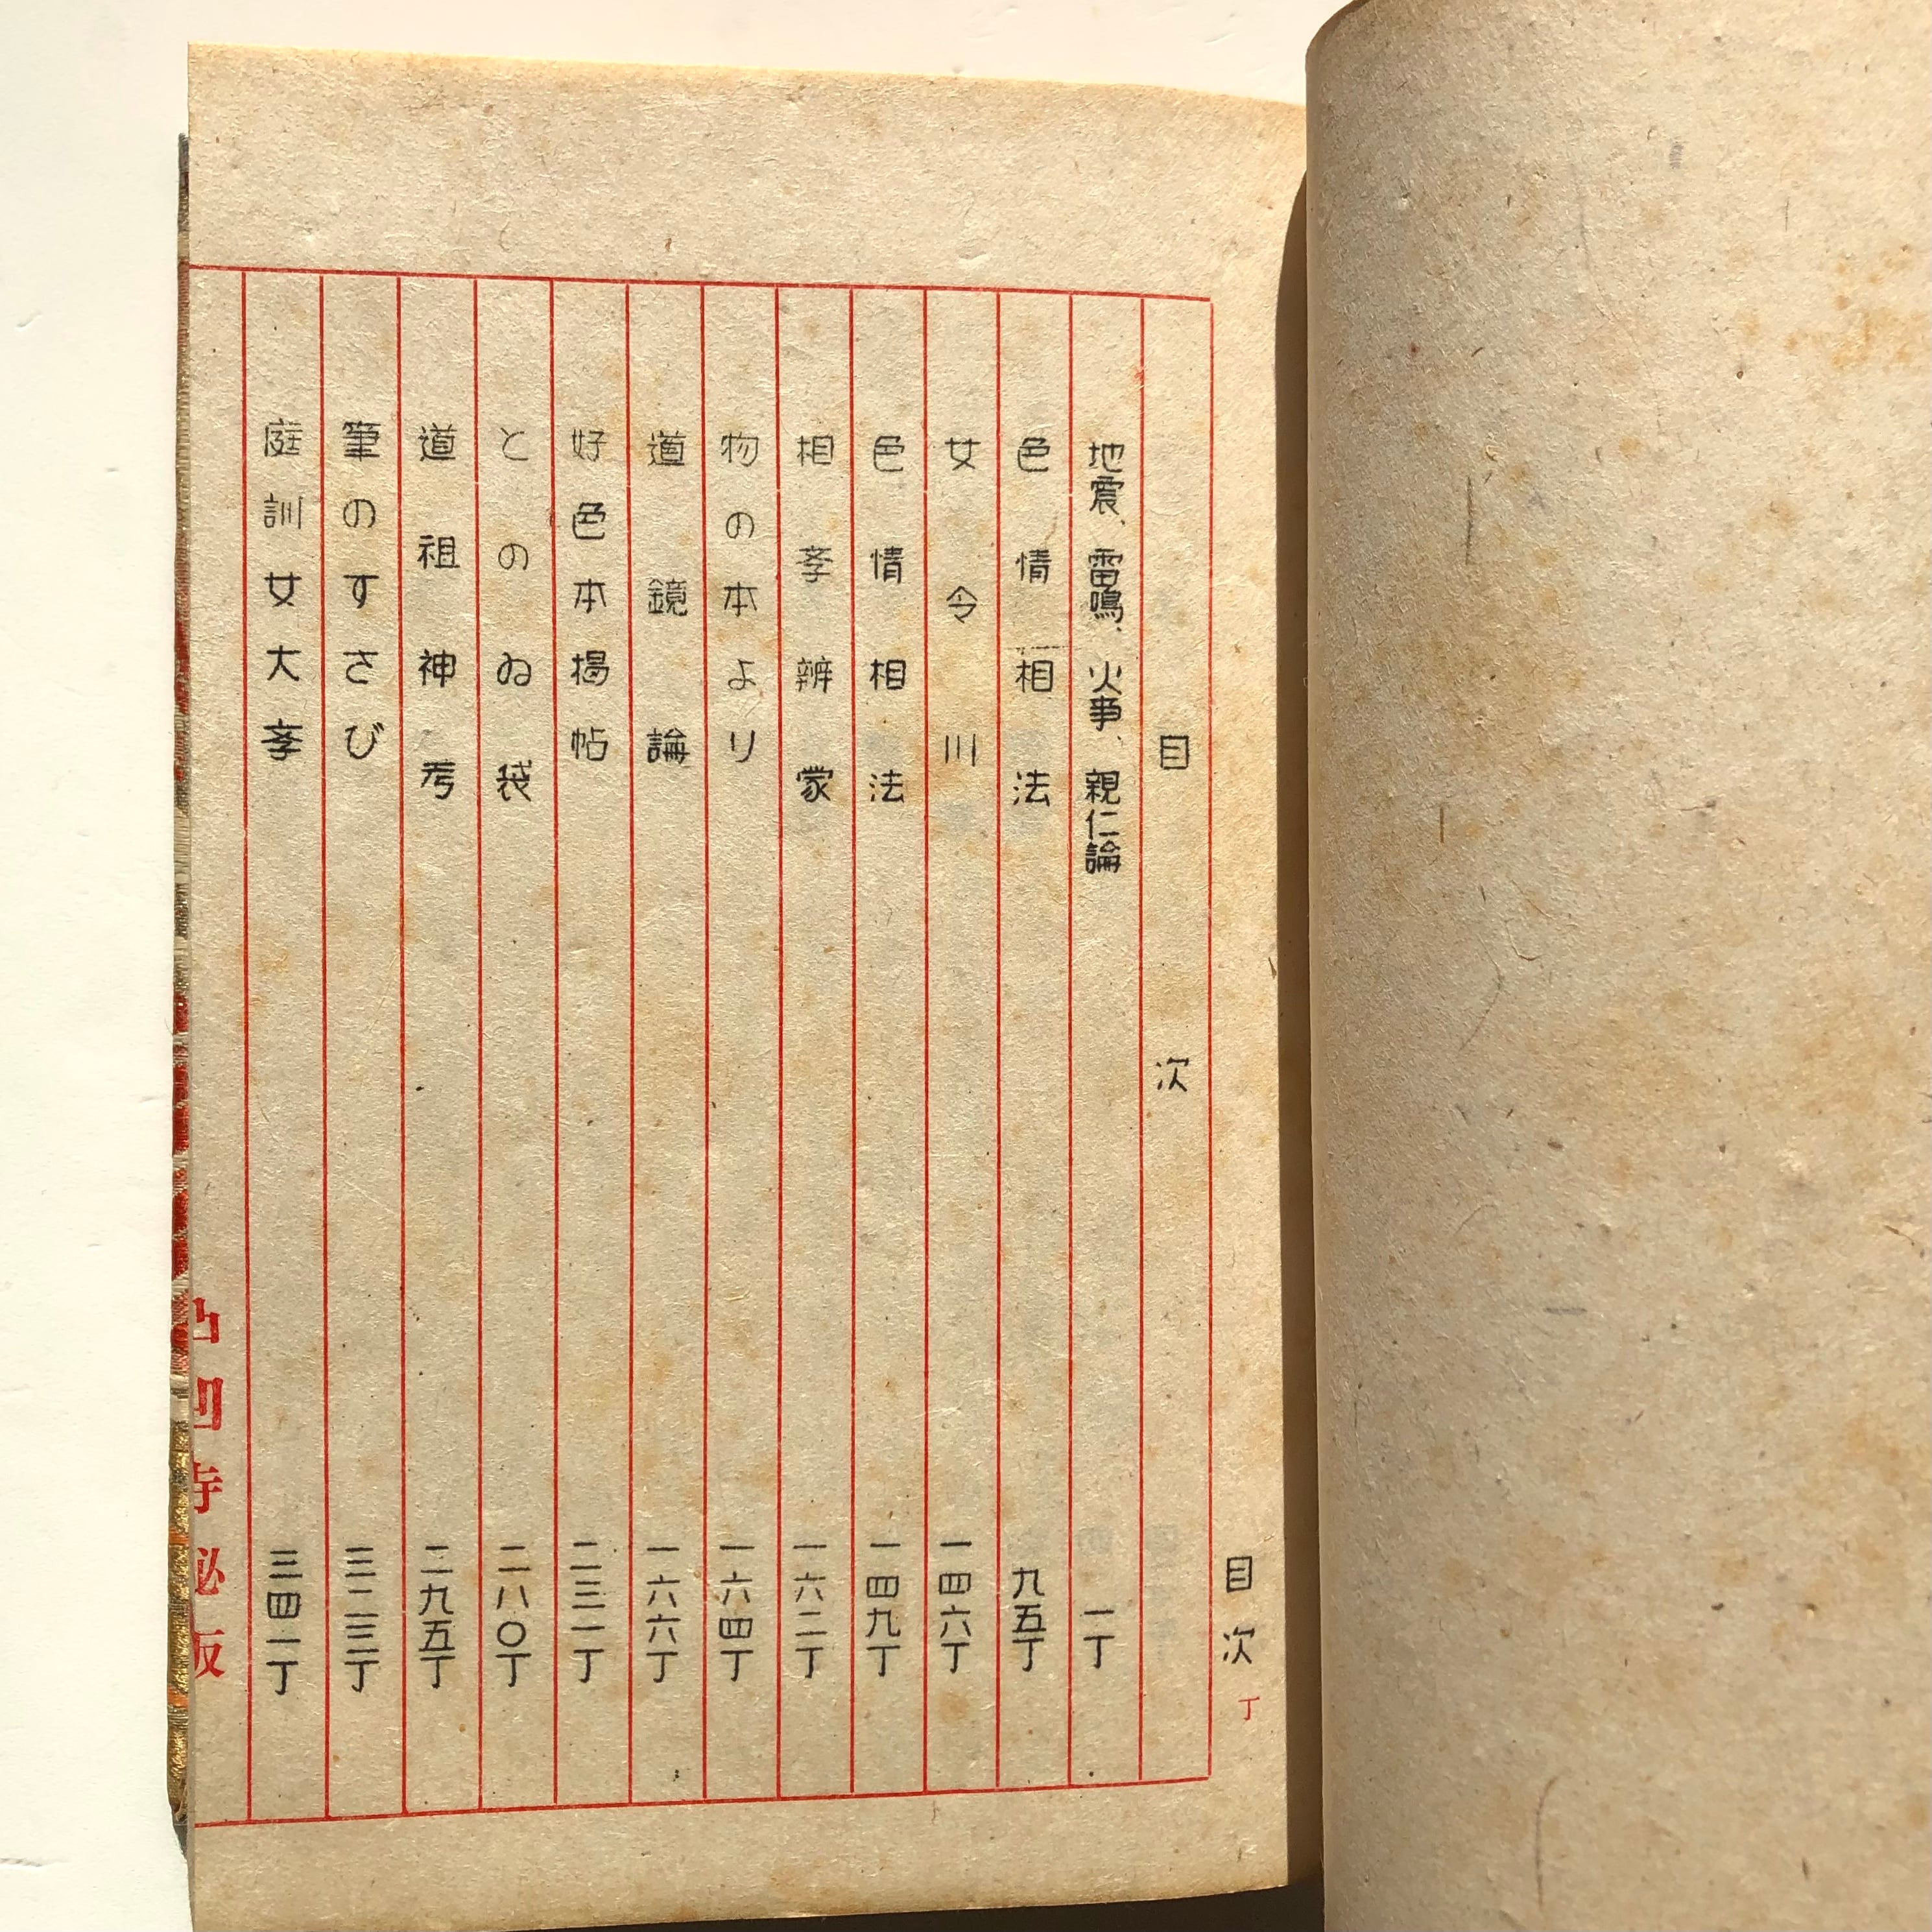 目次 丁
目次
地震、雷鳴、火事、親仁論 一丁
色情相法 九五丁
女令川 一四六丁
色情相法 一四九丁
相斈辨蒙 一六二丁
物の本より 一六四丁
道鏡論 一六六丁
好色本掲帖 二三一丁
とのゐ袋 二八〇丁
道祖神考 二九五丁
筆のすさび 三二三丁
庭訓女大斈 三四一丁
凸凹寺秘